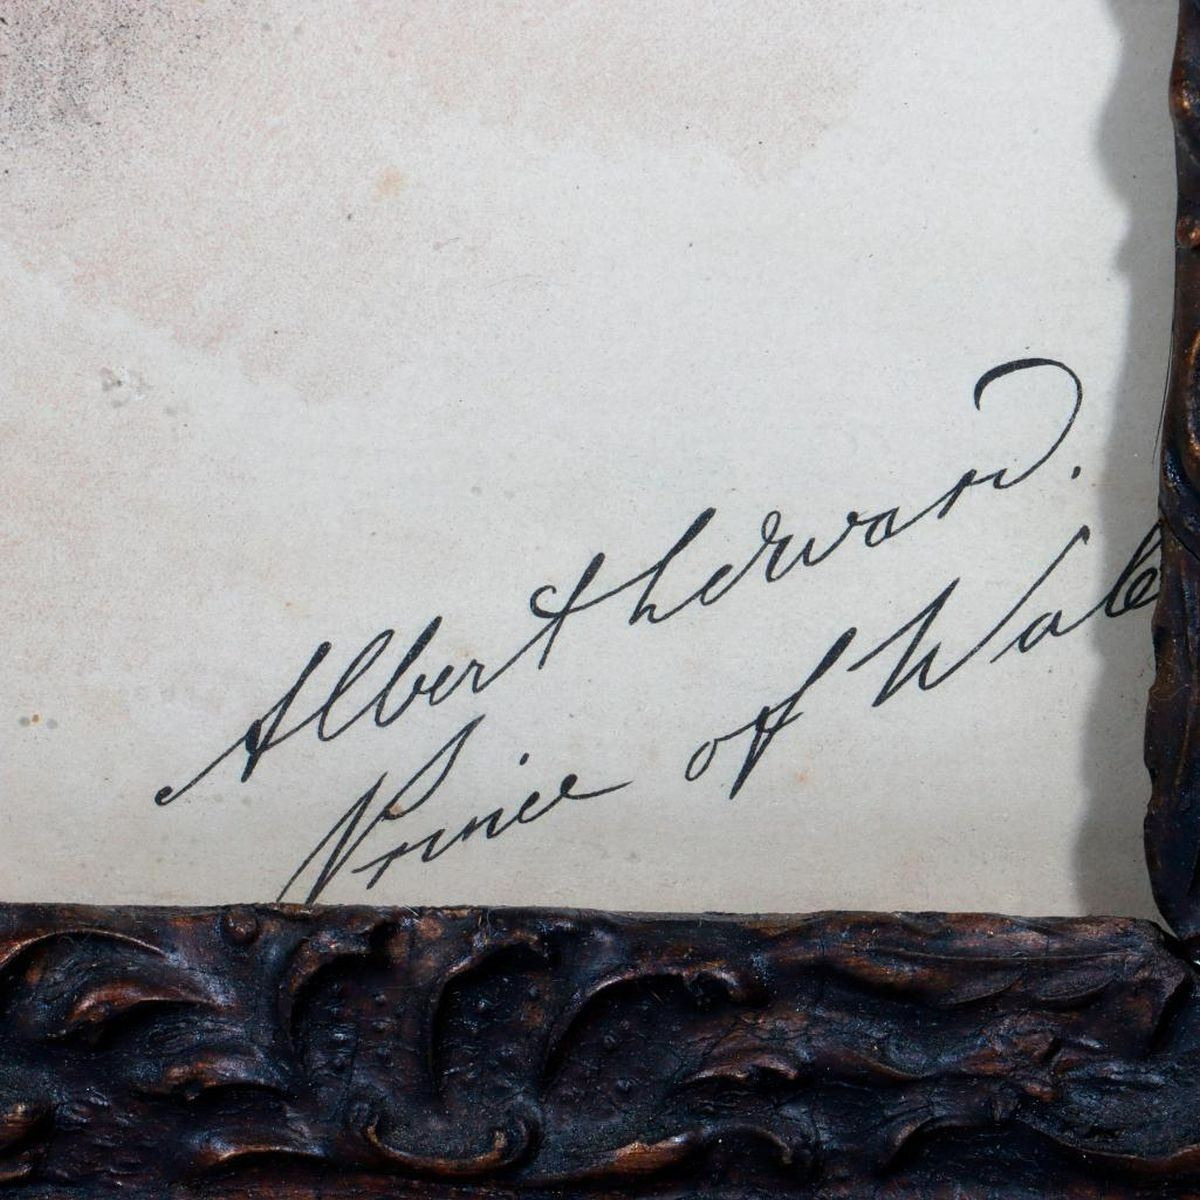 Albert Edward.
Prince of Wale